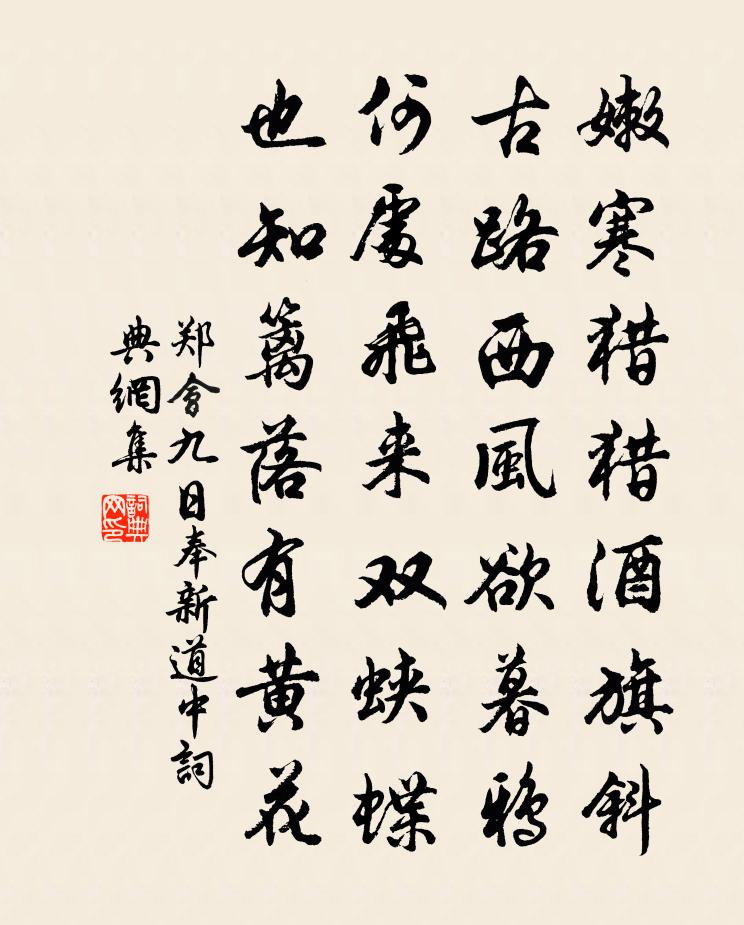 嫩寒猎猎酒旗斜
古路西風欲暮鸦
何處飛来双蛱蝶
也知篱落有黄花
郑會九日奉新道中詞
典網集
詞典
网印